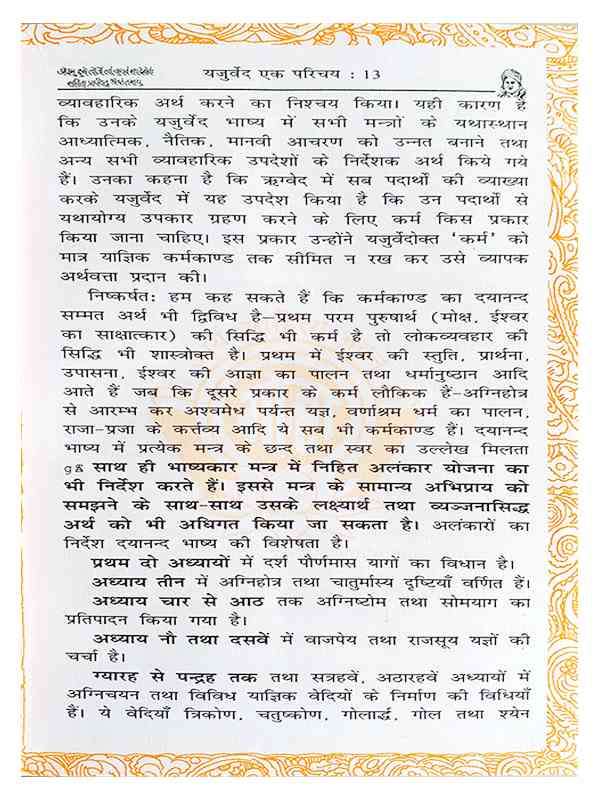 यजुर्वेद एक परिचय : 13
व्यावहारिक अर्थ करने का निश्चय किया। यही कारण है
कि उनके यजुर्वेद भाष्य में सभी मन्त्रों के यथास्थान
आध्यात्मिक, नैतिक, मानवी आचरण को उन्नत बनाने तथा
अन्य सभी व्यावहारिक उपदेशों के निर्देशक अर्थ किये गये
हैं। उनका कहना है कि ऋग्वेद में सब पदार्थों की व्याख्या
करके यजुर्वेद में यह उपदेश किया है कि उन पदार्थों से
यथायोग्य उपकार ग्रहण करने के लिए कर्म किस प्रकार
किया जाना चाहिए। इस प्रकार उन्होंने यजुर्वेदोक्त ‘कर्म’ को
मात्र याज्ञिक कर्मकाण्ड तक सीमित न रख कर उसे व्यापक
अर्थवत्ता प्रदान की।
निष्कर्षत: हम कह सकते हैं कि कर्मकाण्ड का दयानन्द
सम्मत अर्थ भी द्विविध है–प्रथम परम पुरुषार्थ (मोक्ष, ईश्वर
का साक्षात्कार) की सिद्धि भी कर्म है तो लोकव्यवहार की
सिद्धि भी शास्त्रोक्त है। प्रथम में ईश्वर की स्तुति, प्रार्थना,
उपासना, ईश्वर की आज्ञा का पालन तथा धर्मानुष्ठान आदि
आते हैं जब कि दूसरे प्रकार के कर्म लौकिक हैं–अग्निहोत्र
से आरम्भ कर अश्वमेध पर्यन्त यज्ञ, वर्णाश्रम धर्म का पालन,
राजा-प्रजा के कर्त्तव्य आदि ये सब भी कर्मकाण्ड हैं। दयानन्द
भाष्य में प्रत्येक मन्त्र के छन्द तथा स्वर का उल्लेख मिलता
साथ ही भाष्यकार मन्त्र में निहित अलंकार योजना का
भी निर्देश करते हैं। इससे मन्त्र के सामान्य अभिप्राय को
समझने के साथ-साथ उसके लक्ष्यार्थ तथा व्यञ्जनासिद्ध
अर्थ को भी अधिगत किया जा सकता है। अलंकारों का
निर्देश दयानन्द भाष्य की विशेषता है।
प्रथम दो अध्यायों में दर्श पौर्णमास यागों का विधान है।
अध्याय तीन में अग्निहोत्र तथा चातुर्मास्य दृष्टियाँ वर्णित हैं।
अध्याय चार से आठ तक अग्निष्टोम तथा सोमयाग का
प्रतिपादन किया गया है।
अध्याय नौ तथा दसवें में वाजपेय तथा राजसूय यज्ञों की
चर्चा है।
ग्यारह से पन्द्रह तक तथा सत्रहवें, अठारहवें अध्यायों में
अग्निचयन तथा विविध याज्ञिक वेदियों के निर्माण की विधियाँ
हैं। ये वेदियाँ त्रिकोण, चतुष्कोण, गोलार्द्ध, गोल तथा श्येन